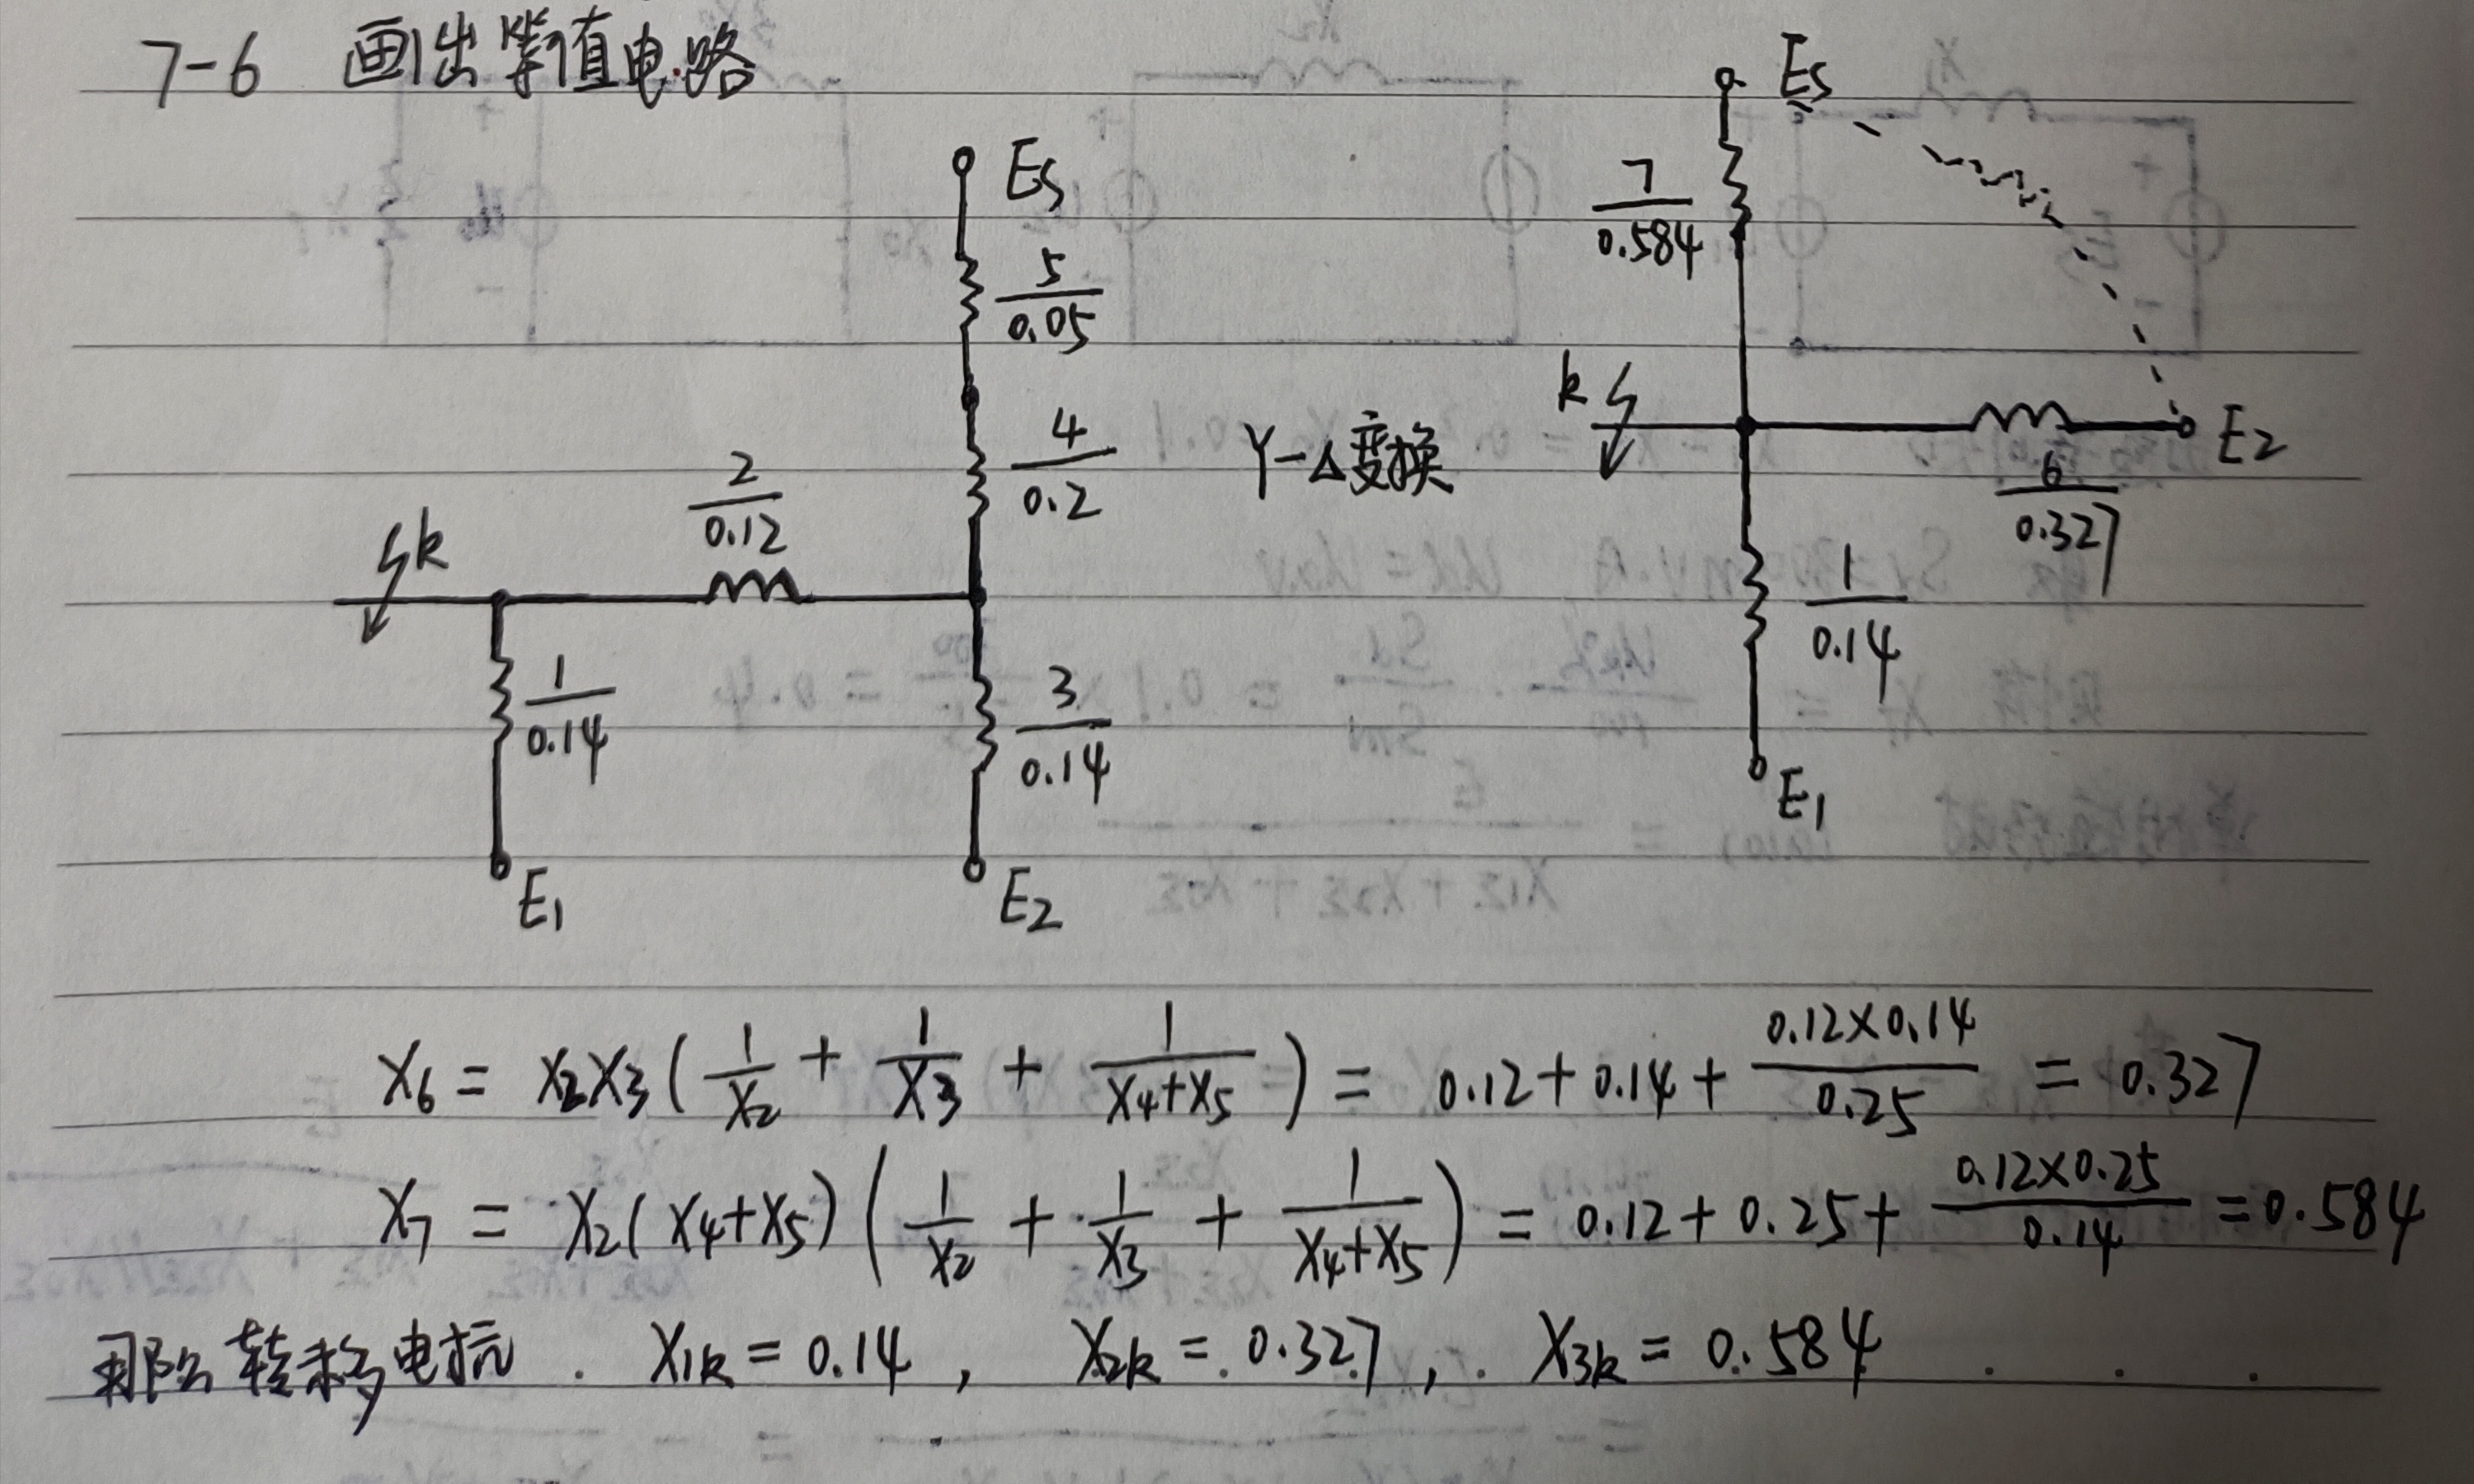 7-6 画出等值电路
Es
5/0.05
4/0.2
2/0.12
k
1/0.14
3/0.14
E1
E2
Y-Δ变换
Es
7/0.584
k
E2
6/0.327
1/0.14
E1
X6 = X2X3(1/X2 + 1/X3 + 1/(X4+X5)) = 0.12+0.14+ 0.12×0.14/0.25 = 0.327
X7 = X2(X4+X5)(1/X2 + 1/X3 + 1/(X4+X5)) = 0.12+0.25+ 0.12×0.25/0.14 =0.584
转移电抗. X1k = 0.14, X2k = 0.327, X3k = 0.584